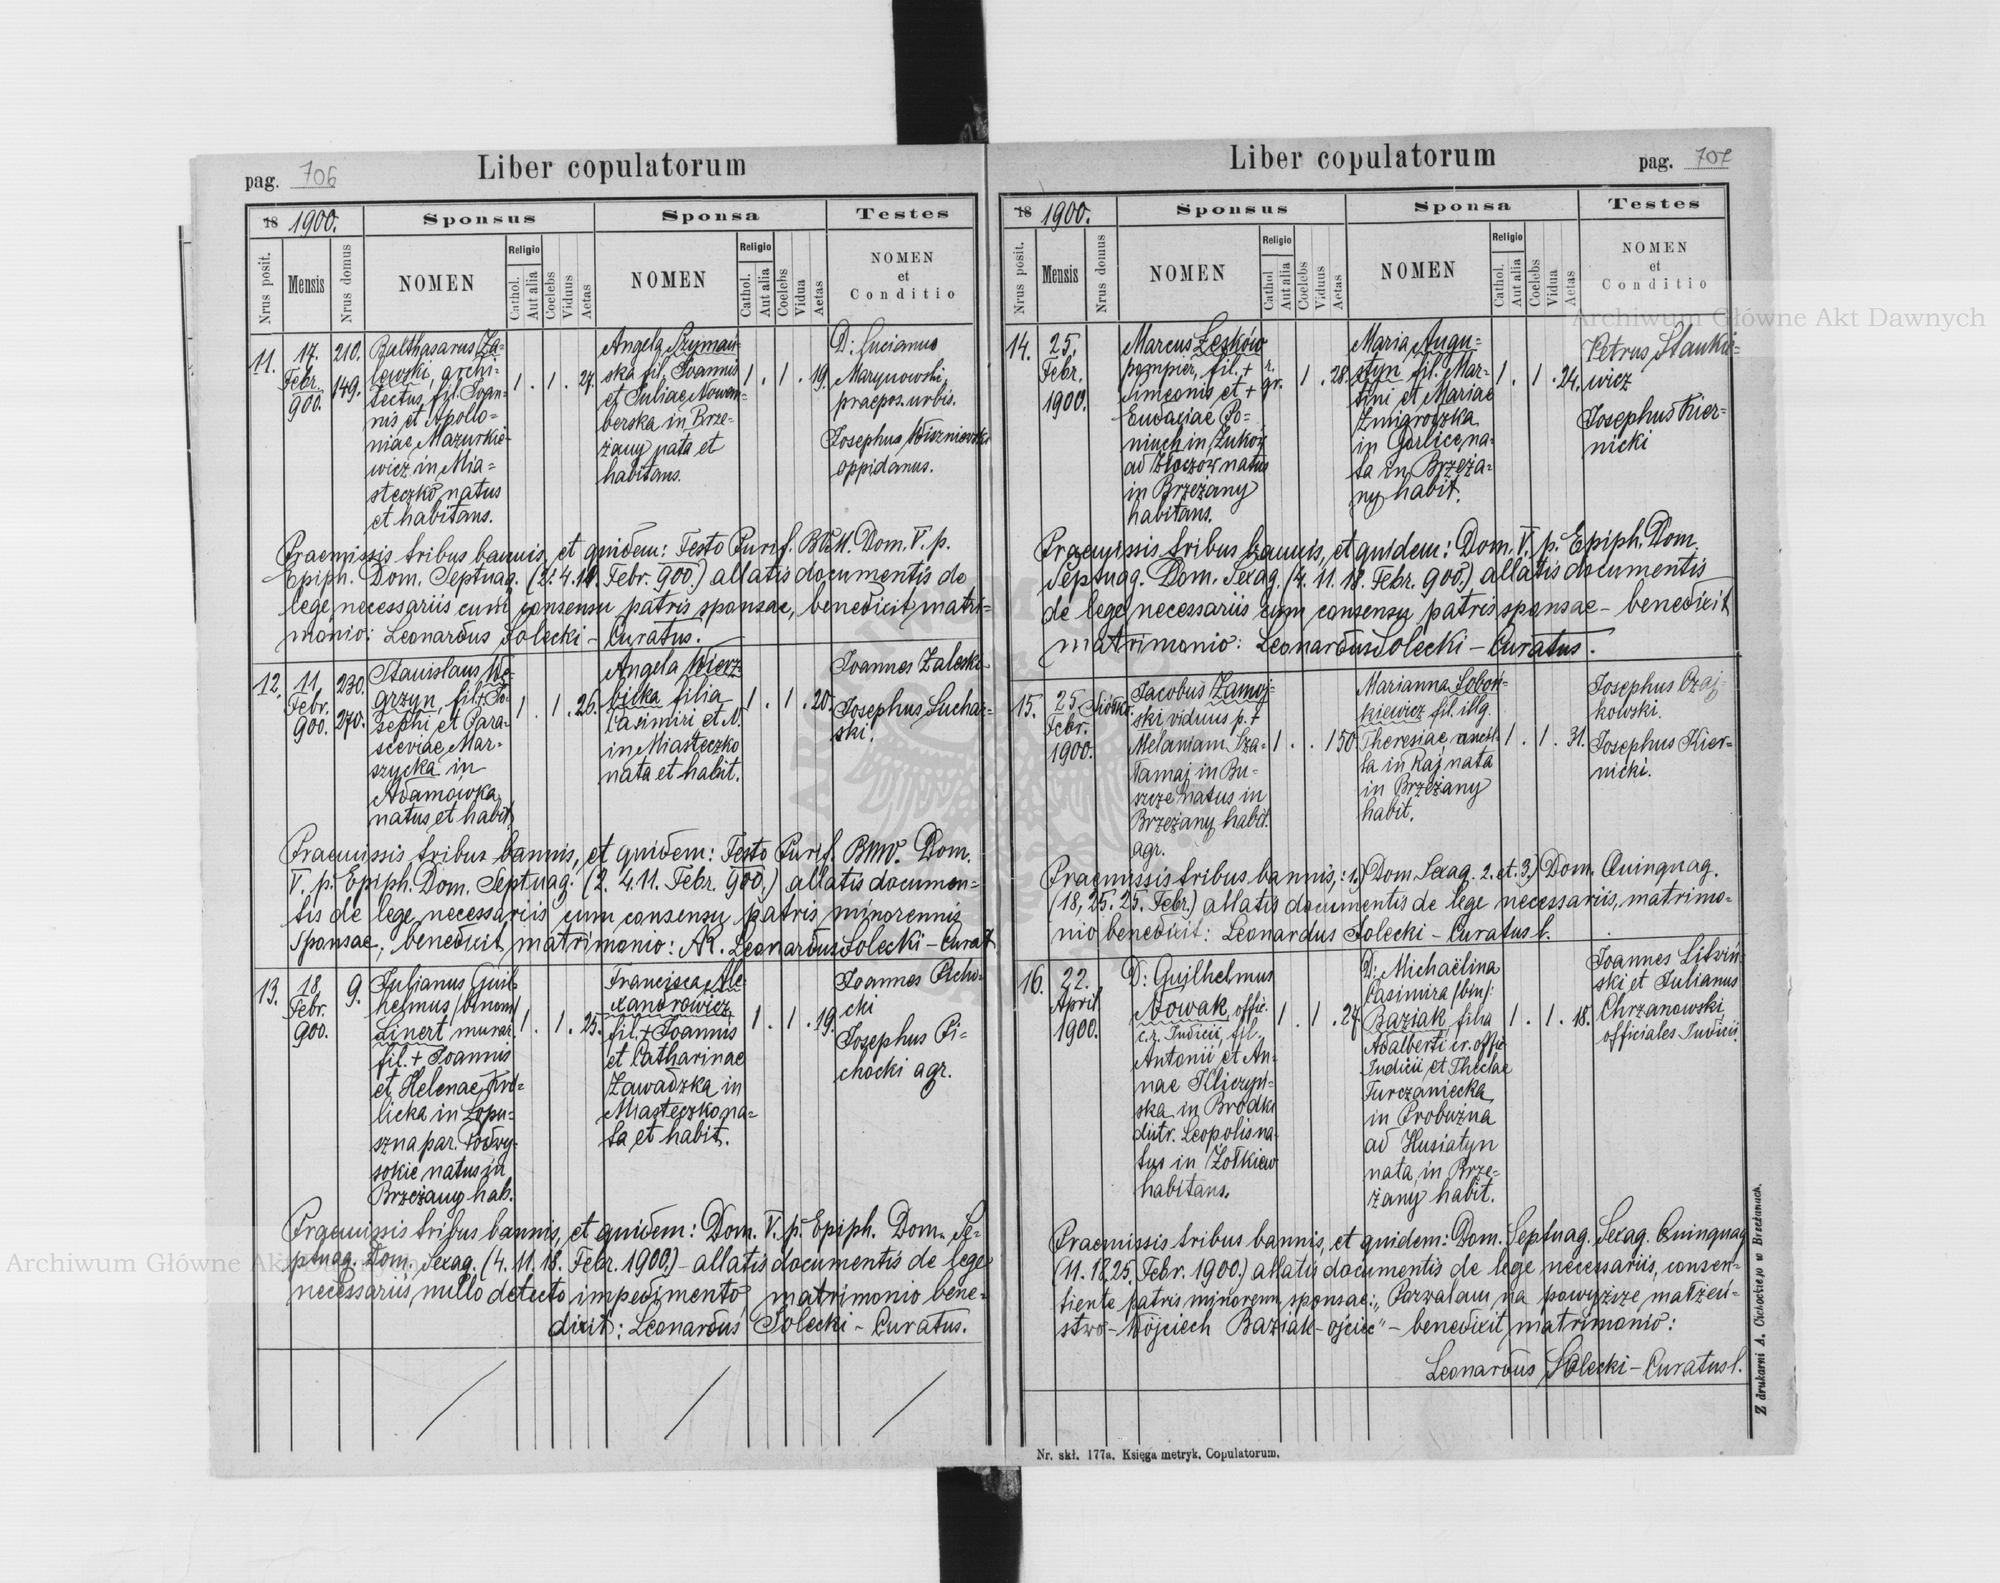 pag. 706
Liber copulatorum
18 1900.
Sponsus
Sponsa
Testes
Nrus posit.
Mensis
Nrus domus
NOMEN
Religio
Cathol.
Aut alia
Coelebs
Viduus
Aetas
NOMEN
Religio
Cathol.
Aut alia
Coelebs
Vidua
Aetas
NOMEN
et
Conditio
11.
17.
Febr.
900.
210.
149.
Balthasarus Za-
lewski, archi-
tectus, fil. Joan-
nis et Apollo-
niae Mazurkie-
wicz in Mia-
steczko natus
et habitans.
1 . 1 . 27.
Angela Szymań-
ska fil. Joannis
et Juliae Nowem-
berska in Brze-
żany nata et
habitans.
1 . 1 . 19.
D: Lucianus
Marynowski,
praepos. urbis.
Josephus Wiszniewski
oppidanus.
Praemissis tribus bannis, et quidem: Festo Purif. BVM. Dom. V. p.
Epiph. Dom. Septuag. (2. 4. 11. Febr. 900.) allatis documentis de
lege necessariis cum consensu patris sponsae, benedixit matri-
monio: Leonardus Solecki – Curatus.
12.
11.
Febr.
900.
230.
270.
Stanislaus We-
grzyn, fil. + Jo-
zephi et Para-
sceviae Mar-
szycka in
Adamowka
natus et habit.
1 . 1 . 26.
Angela Wierz-
bicka filia
Casimiri et N.
in Miasteczko
nata et habit.
1 . 1 . 20.
Joannes Zaleski
Josephus Suchar-
ski.
Praemissis tribus bannis, et quidem: Festo Purif. BMV. Dom.
V. p. Epiph. Dom. Septuag. (2. 4. 11. Febr. 900.) allatis documen-
tis de lege necessariis cum consensu patris minorennis
Sponsae, benedixit matrimonio: AR. Leonardus Solecki – Curat
13.
18.
Febr.
900.
9.
Julianus Guil-
helmus (binom)
Linert murar.
fil. + Joannis
et Helenae
licka in Łopu-
szna par. Podwy-
sokie natus in
Brzeżany hab.
1 . 1 . 25.
Francisca Ale-
xandrowicz
fil. + Joannis
et Catharinae
Zawadzka in
Miasteczko na-
ta et habit.
1 . 1 . 19.
Joannes Picho-
cki
Josephus Pi-
chocki agr.
Praemissis tribus bannis, et quidem: Dom. V. p. Epiph. Dom. Se-
ptuag. Dom. Sexag. (4. 11. 18. Febr. 1900.) – allatis documentis de lege
necessariis, nullo detecto impedimento, matrimonio bene-
dixit: Leonardus Solecki – Curatus.
Liber copulatorum
pag. 707
18 1900.
Sponsus
Sponsa
Testes
Nrus posit.
Mensis
Nrus domus
NOMEN
Religio
Cathol
Aut alia
Coelebs
Viduus
Aetas
NOMEN
Religio
Cathol.
Aut alia
Coelebs
Vidua
Aetas
NOMEN
et
Conditio
14.
25.
Febr.
1900.
Marcus Leśków
pompier, fil. +
Simeonis et +
Eudoxiae Po-
niuch in Żuków
ad Złoczow natus
in Brzeżany
habitans.
r.
gr. 1 . 28.
Maria Augu-
styn fil. Mar-
tini et Mariae
Żmigrodzka
in Gorlice na-
ta in Brzeża-
ny habit.
1 . 1 . 24.
Petrus Stankie-
wicz
Josephus Kier-
nicki
Praemissis tribus bannis, et quidem: Dom. V. p. Epiph. Dom
Septuag. Dom. Sexag. (4. 11. 18. Febr. 900.) allatis documentis
de lege necessariis cum consensu patris sponsae – benedixit
matrimonio: Leonardus Solecki – Curatus.
15.
25
Febr.
1900.
Jacobus Zamoj-
ski viduus p. +
Melaniam Sza-
tamaj in Bu-
szcze natus in
Brzeżany habit.
agr.
1 . . 1 50
Marianna Soboń-
kiewicz fil. illg.
Theresiae, ancil-
la in Raj nata
in Brzeżany
habit.
1 . 1 . 31.
Josephus Czaj-
kowski.
Josephus Kier-
nicki.
Praemissis tribus bannis, : 1.) Dom Sexag. 2. et. 3.) Dom. Quinquag.
(18, 25. 25. Febr.) allatis documentis de lege necessariis, matrimo-
nio benedixit: Leonardus Solecki – Curatus l.
16.
22.
April
1900.
D: Gujlhelmus
Nowak, offic.
c.r. Judicii, fil.
Antonii et An-
nae Kliczyń-
ska in Brodki
distr. Leopolis na-
tus in Żołkiew
habitans.
1 . 1 . 27
D: Michaëlina
Casimira (bin):
Baziak filia
Adalberti cr. offic
Judicii et Theclae
Turczaniecka
in Probużna
ad Husiatyn
nata, in Brze-
żany habit.
1 . 1 . 18.
Joannes Litwiń-
ski et Julianus
Chrzanowski,
officiales Judicii.
Praemissis tribus bannis, et quidem: Dom. Septuag. Sexag. Quinquag
(11. 18. 25. Febr. 1900.) allatis documentis de lege necessariis, consen-
tiente patris minorenn. sponsae: „Pozwalam na powyższe małżeń-
stwo – Wojciech Baziak – ojciec" – benedixit matrimonio:
Leonardus Solecki – Curatus l.
Nr. skł. 177a. Księga metryk. Copulatorum.
Z drukarni A. Cichockiego w Brzeżanach.
Archiwum Główne Akt Dawnych
Archiwum Główne Akt Dawnych